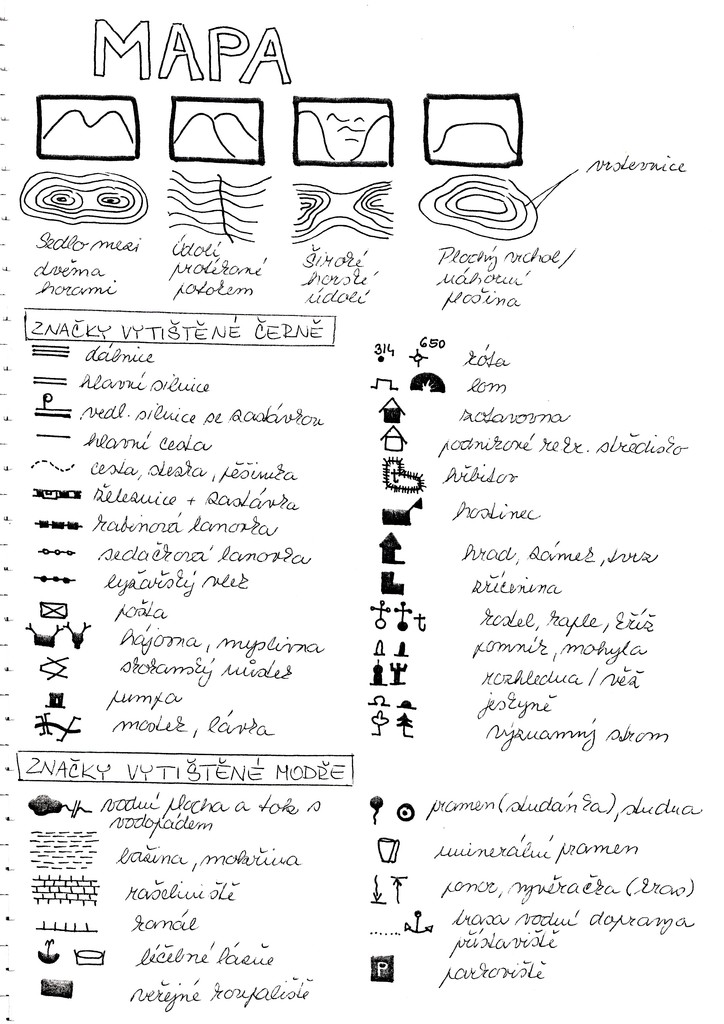 MAPA
vrstevnice
Sedlo mezi
dvěma
horami
Údolí
protékané
potokem
Široké
horské
údolí
Plochý vrchol/
náhorní
plošina
ZNAČKY VYTIŠTĚNÉ ČERNĚ
dálnice
hlavní silnice
P
vedl. silnice se zastávkou
hlavní cesta
cesta, stezka, pěšinka
železnice + zastávka
kabinová lanovka
sedačková lanovka
lyžařský vlek
pošta
hájovna, myslivna
skokanský můstek
pumpa
mostek, lávka
314 650
kóta
lom
zotavovna
podnikové rekr. středisko
hřbitov
hostinec
hrad, zámek, tvrz
zřícenina
kostel, kaple, kříž
pomník, mohyla
rozhledna / věž
jeskyně
významný strom
ZNAČKY VYTIŠTĚNÉ MODŘE
vodní plocha a tok s
vodopádem
bažina, mokřina
rašeliniště
kanál
léčebné lázně
veřejné koupaliště
pramen (studánka), studna
minerální pramen
ponor, vyvěračka (kras)
trasa vodní dopravy
přístaviště
P
parkoviště